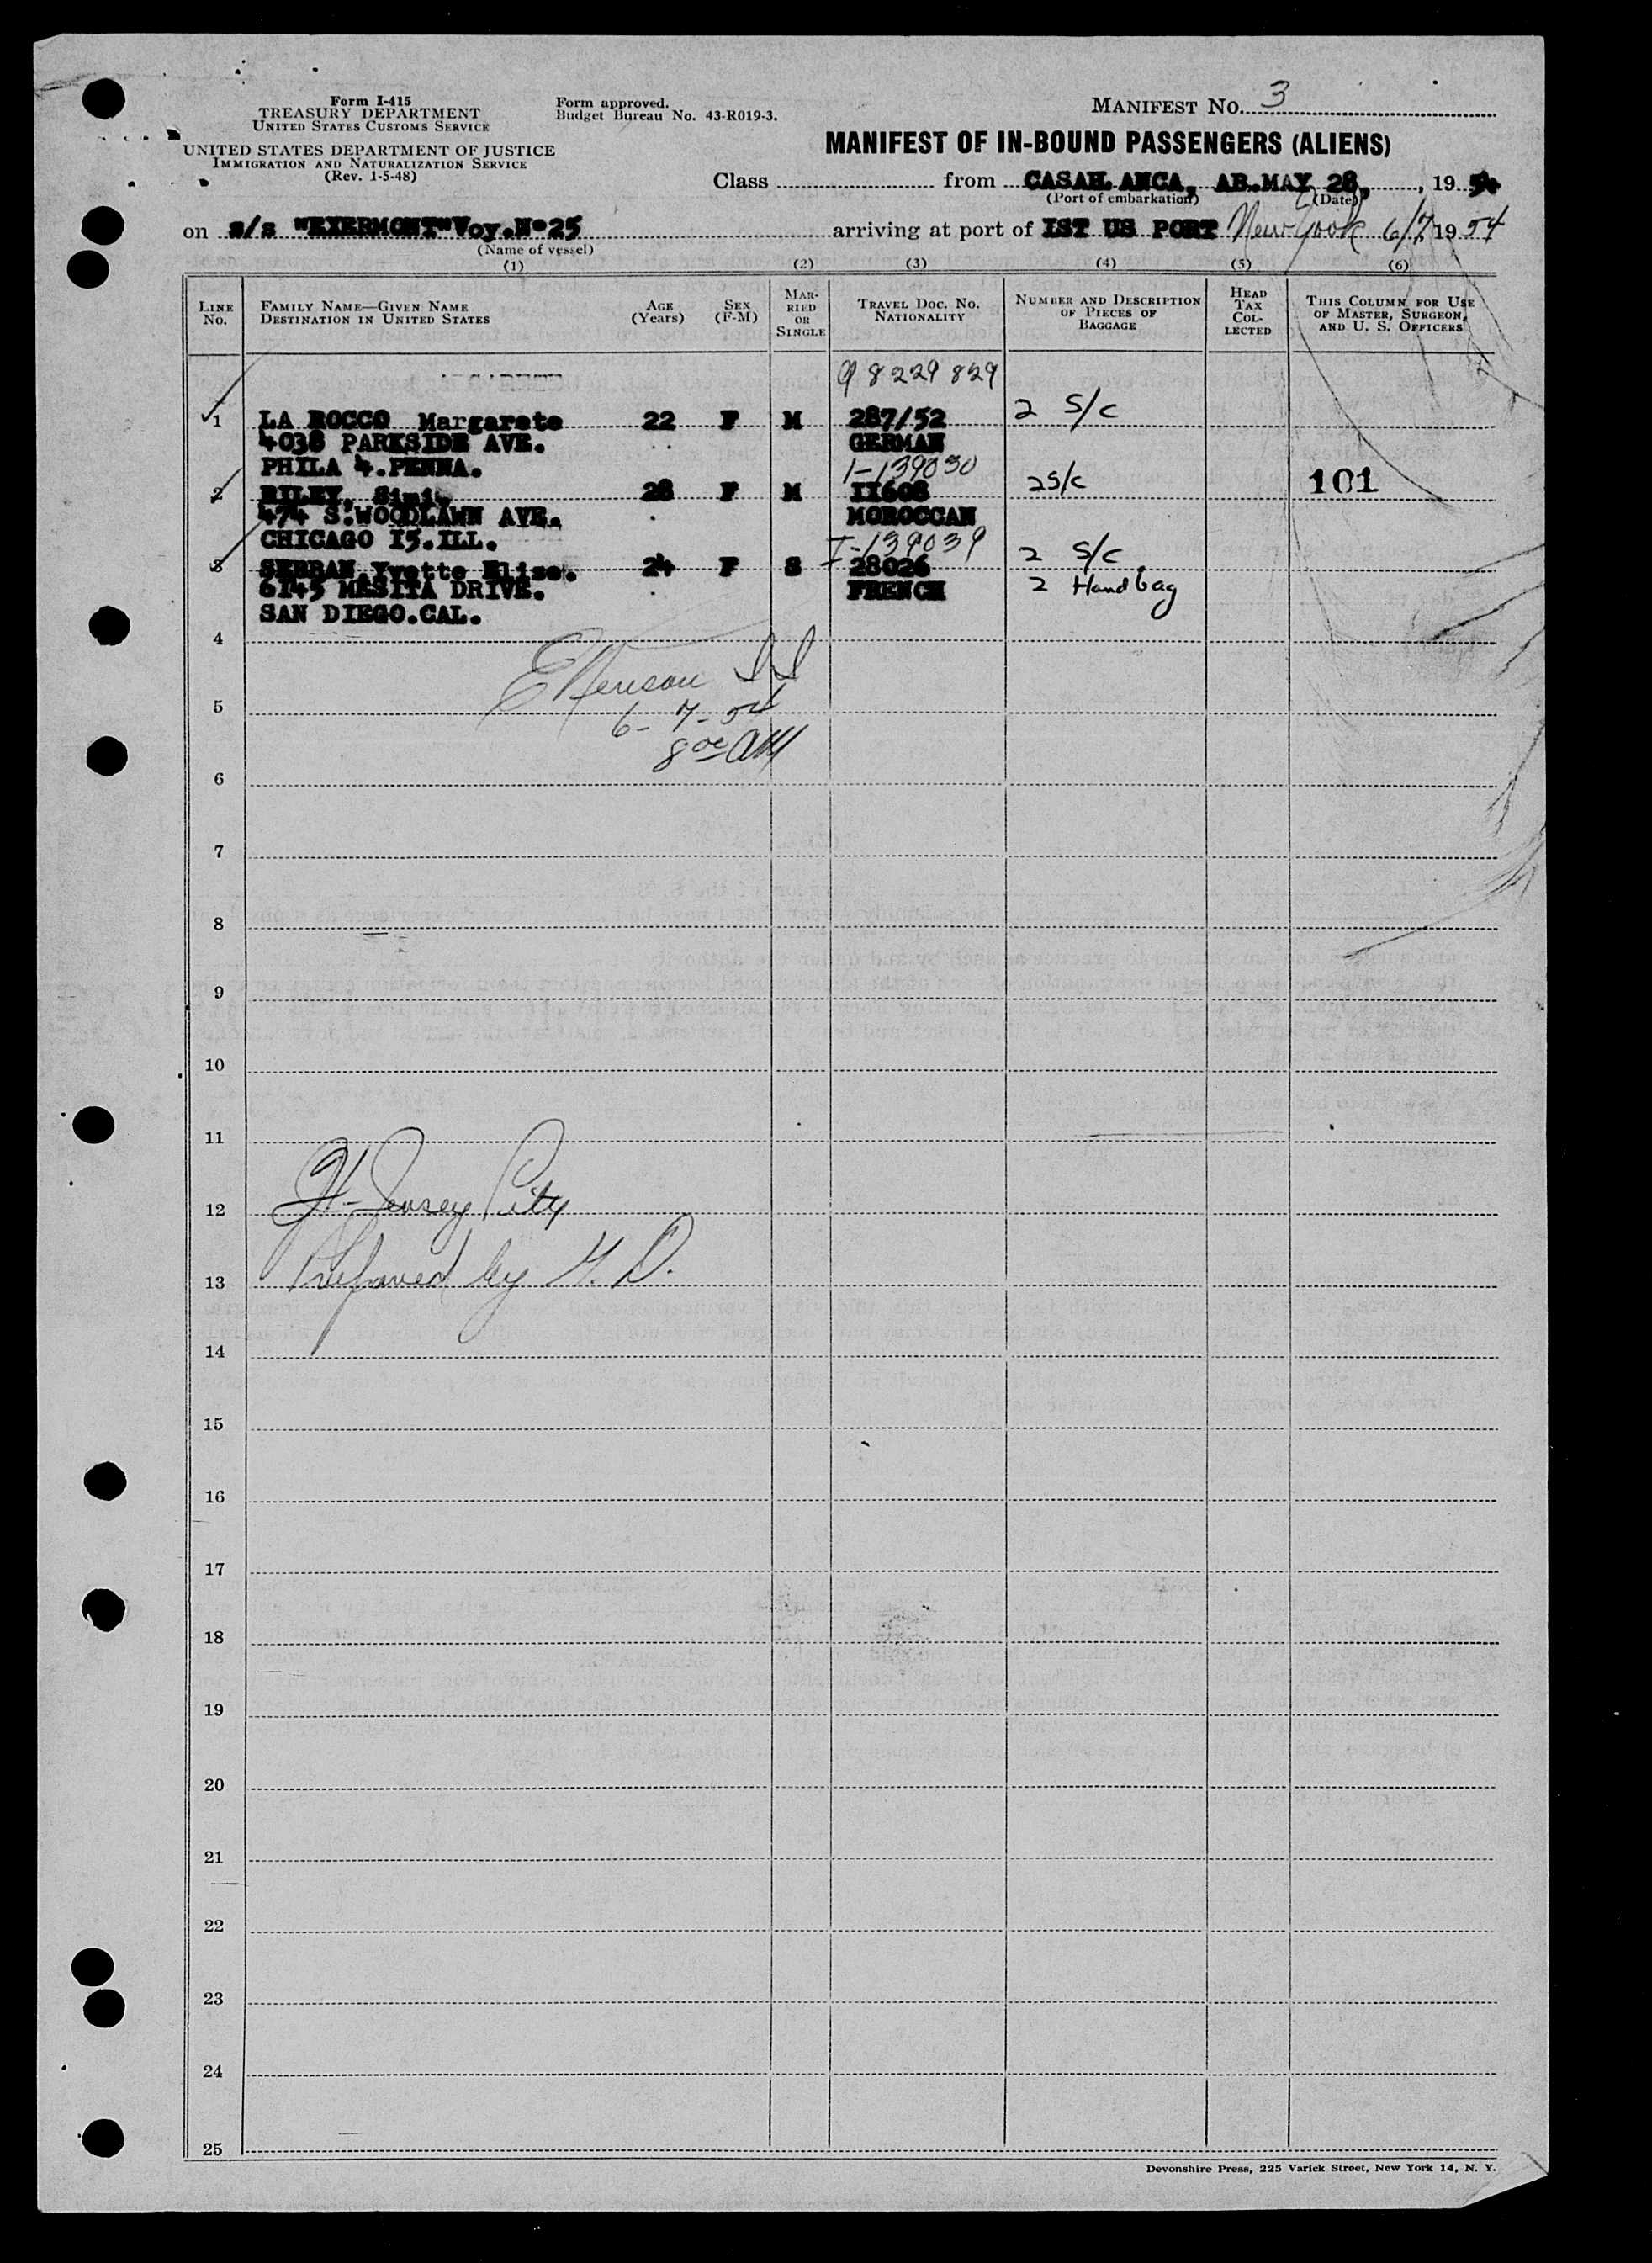 Form I-415
TREASURY DEPARTMENT
UNITED STATES CUSTOMS SERVICE
UNITED STATES DEPARTMENT OF JUSTICE
IMMIGRATION AND NATURALIZATION SERVICE
(Rev. 1-5-48)
Form approved.
Budget Bureau No. 43-R019-3.
MANIFEST NO. 3
MANIFEST OF IN-BOUND PASSENGERS (ALIENS)
Class from CASABLANCA, AB.MAY 28, , 19 54
(Port of embarkation) (Date)
on s/s "EXERMONT" Voy.Nº25 arriving at port of IST US PORT New York 6/7 19 54
(Name of vessel)
(1) (2) (3) (4) (5) (6)
LINE NO.
FAMILY NAME—GIVEN NAME
DESTINATION IN UNITED STATES
AGE (Years)
SEX (F-M)
MARRIED OR SINGLE
TRAVEL DOC. NO. NATIONALITY
NUMBER AND DESCRIPTION OF PIECES OF BAGGAGE
HEAD TAX COLLECTED
THIS COLUMN FOR USE OF MASTER, SURGEON, AND U. S. OFFICERS
8229829
1 LA ROCCO Margarete 22 F M 287/52 2 S/C
4038 PARKSIDE AVE. GERMAN
PHILA 4.PENNA. I-139030
2 RILEY, Simi 28 F M II608 2S/C 101
474 S.WOODLAWN AVE. MOROCCAN
CHICAGO I5.ILL. I-139039
3 SERRAN Yvette Elise. 24 F S 28026 2 S/C
6145 MESITA DRIVE. FRENCH 2 Handbag
SAN DIEGO.CAL.
4
5
6-7-54
8 00 AM
6
7
8
9
10
11
Jersey City
12
Prepared by
13
14
15
16
17
18
19
20
21
22
23
24
25
Devonshire Press, 225 Varick Street, New York 14, N. Y.